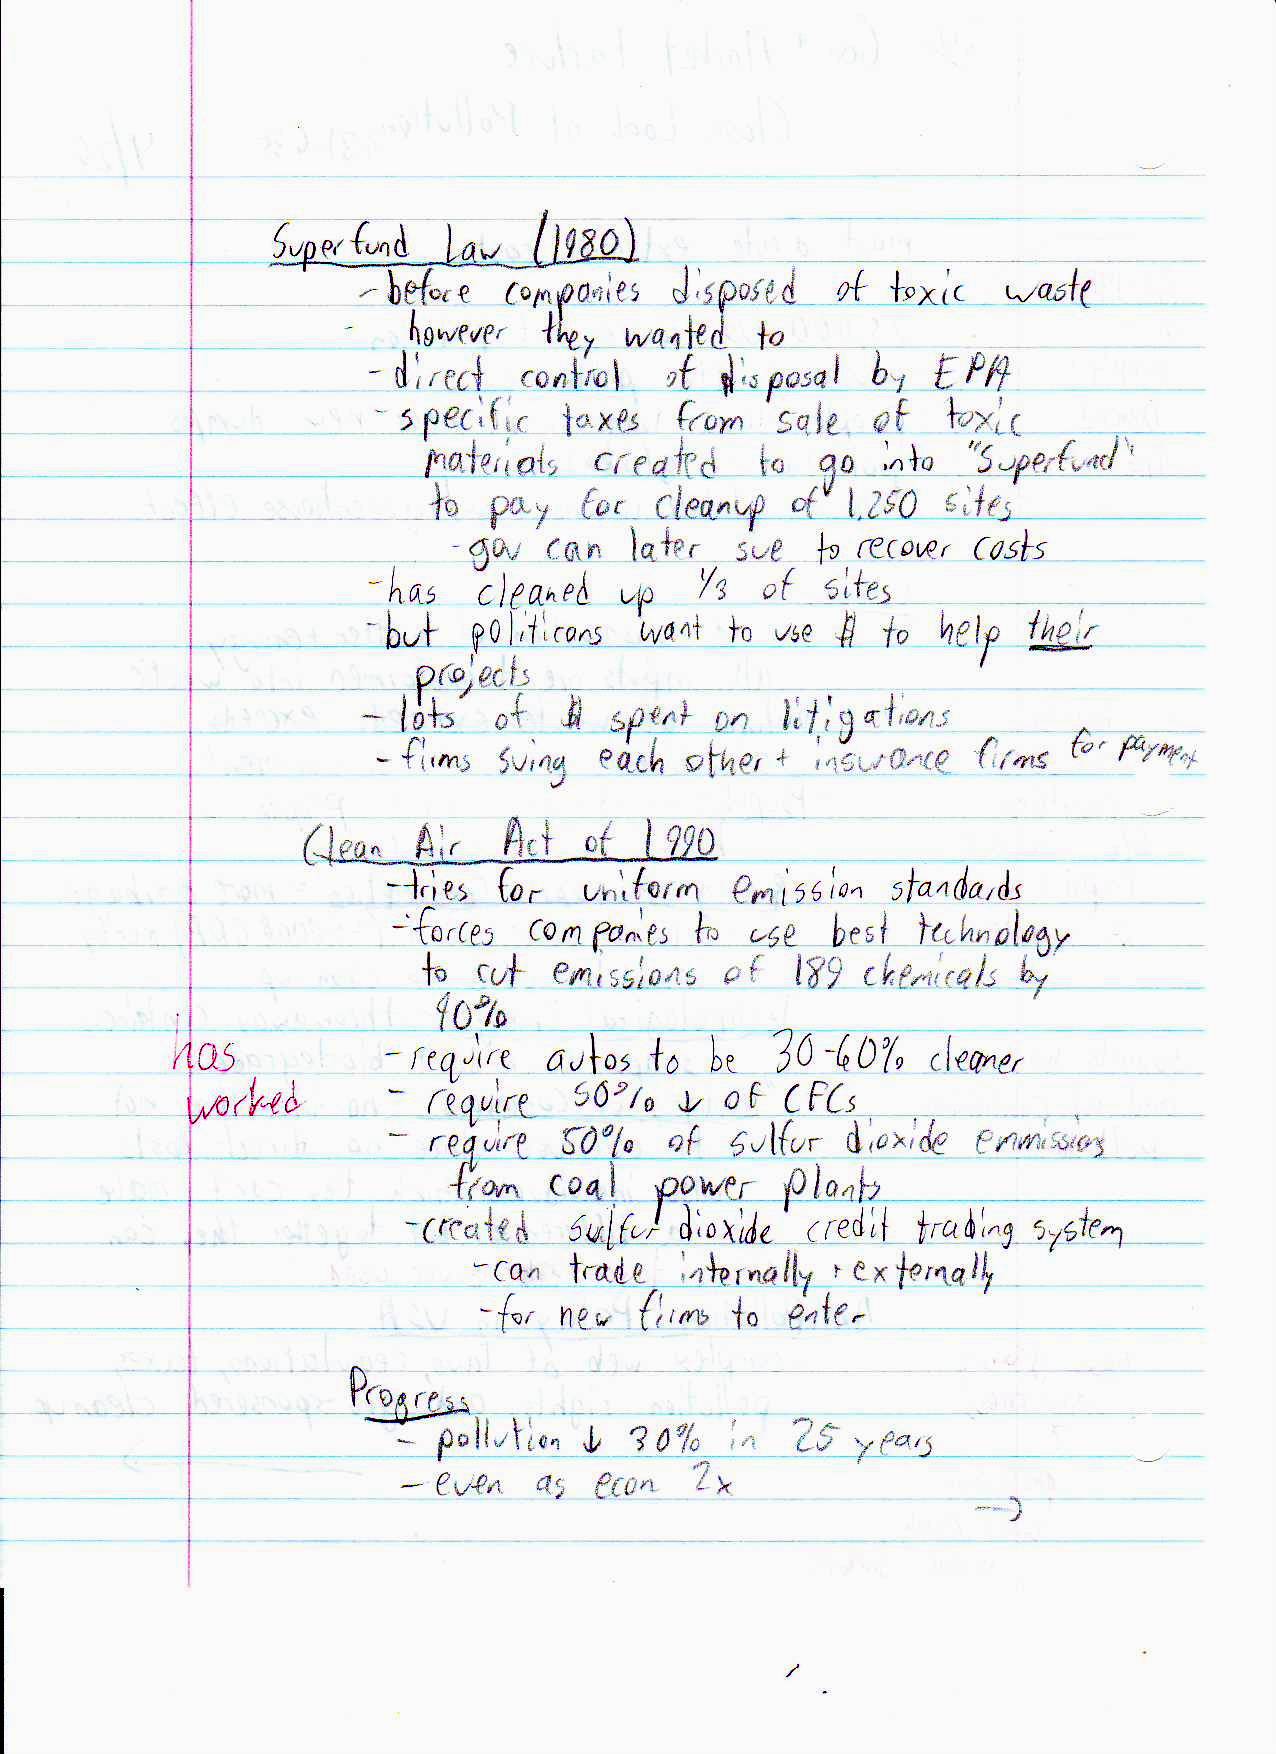 Superfund Law (1980)
- before companies disposed of toxic waste
- however they wanted to
- direct control of disposal by EPA
- specific taxes from sale of toxic
materials created to go into "Superfund"
to pay for cleanup of 1,250 sites
- gov can later sue to recover costs
- has cleaned up 1/3 of sites
- but politicans want to use $ to help their
projects
- lots of $ spent on litigations
- firms suing each other + insurance firms for payment
Clean Air Act of 1990
- tries for uniform emission standards
- forces companies to use best technology
to cut emissions of 189 chemicals by
90%
has
worked
- require autos to be 30-60% cleaner
- require 50% ↓ of CFCs
- require 50% of sulfur dioxide emmissions
from coal power plants
- created sulfur dioxide credit trading system
- can trade internally + externally
- for new firms to enter
Progress
- pollution ↓ 30% in 25 years
- even as econ 2x
→